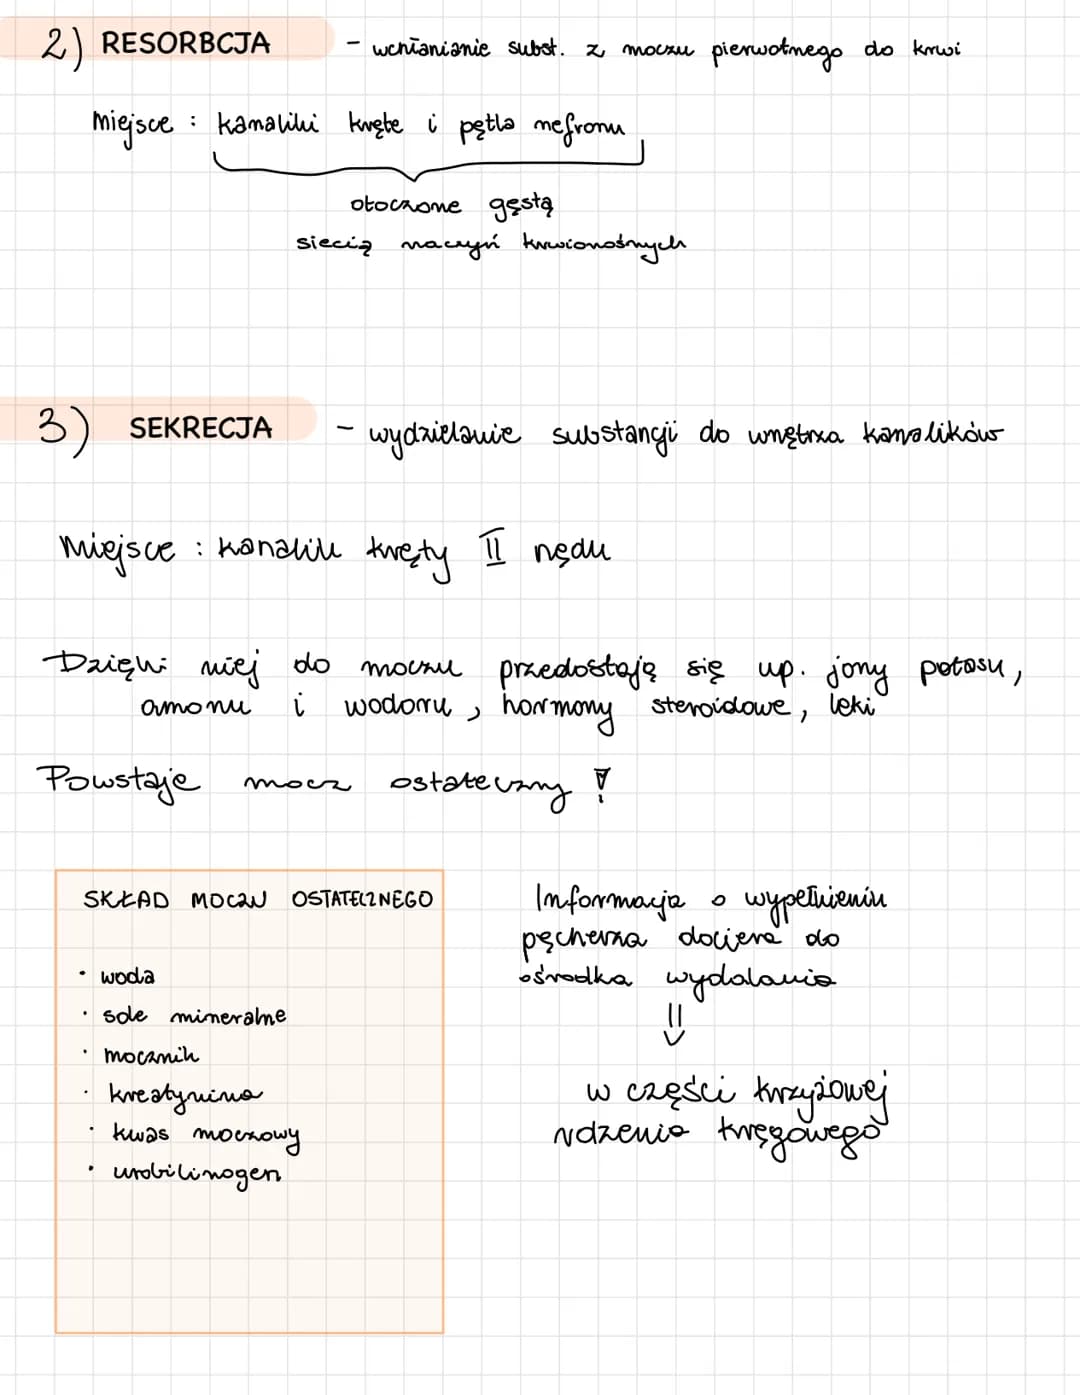 2) RESORBCJA - wchłanianie subst. z moczu pierwotnego do krwi
Miejsce : kanaliki kręte i pętla nefronu
otoczone gęstą
siecią naczyń krwionośnych
3) SEKRECJA - wydzielanie substancji do wnętrza kanalików
Miejsce : kanalik kręty II rzędu
Dzięki niej do moczu przedostają się np. jony potasu,
amonu i wodoru, hormony steroidowe, leki
Powstaje mocz ostateczny !
SKŁAD MOCZU OSTATECZNEGO
• woda
• sole mineralne
• mocznik
• kreatynina
• kwas moczowy
• urobilinogen
Informacja o wypełnieniu
pęcherza dociera do
ośrodka wydalania
w części krzyżowej
rdzenia kręgowego